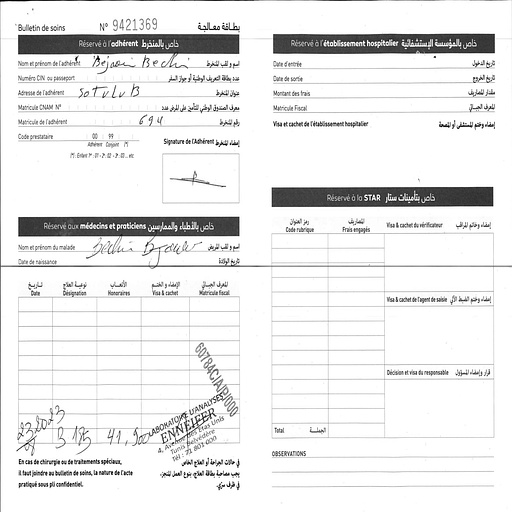 Bulletin de soins N° 9421369 بطاقة معالجة
Réservé à l'adhérent خاص بالمنخرط
Nom et prénom de l'adhérent Béjaoui Bechir إسم و لقب المنخرط
Numéro CIN ou passeport عدد بطاقة التعريف الوطنية أو جواز السفر
Adresse de l'adhérent SOTULUB عنوان المنخرط
Matricule CNAM N° معرف الصندوق الوطني للتأمين على المرض عدد
Matricule de l'adhérent 694 رقم المنخرط
Code prestataire 00 99
Adhérent Conjoint (*)
(*) : Enfant 1er : 01 - 2e : 02 - 3e : 03 ... etc
Signature de l'Adhérent إمضاء المنخرط
Réservé aux médecins et praticiens خاص بالأطباء والممارسين
Nom et prénom du malade Bechir Bejaoui إسم و لقب المريض
Date de naissance تاريخ الولادة
تاريخ نوعية العلاج الأتعاب الإمضاء و الختم المعرف الجبائي
Date Désignation Honoraires Visa & cachet Matricule fiscal
B 175
60784C/A/P/000
LABORATOIRE D'ANALYSES
ENNEIFER
4, Avenue des Etats Unis
Tunis Belvédère
Tél : 71 801 000
En cas de chirurgie ou de traitements spéciaux,
il faut joindre au bulletin de soins, la nature de l'acte
pratiqué sous pli confidentiel.
في حالات الجراحة أو العلاج الخاص
يجب مصاحبة بطاقة العلاج، بنوع العمل المنجز،
في ظرف سري.
Réservé à l'établissement hospitalier خاص بالمؤسسة الإستشفائية
Date d'entrée تاريخ الدخول
Date de sortie تاريخ الخروج
Montant des frais مقدار المصاريف
Matricule Fiscal المعرف الجبائي
Visa et cachet de l'établissement hospitalier إمضاء وختم المستشفى أو المصحة
Réservé à la STAR خاص بتأمينات ستار
رمز العنوان المصاريف
Code rubrique Frais engagés
Visa & cachet du vérificateur إمضاء وخاتم المراقب
Visa & cachet de l'agent de saisie إمضاء وختم الضبط الآلي
Décision et visa du responsable قرار وإمضاء المسؤول
Total الجملة
OBSERVATIONS